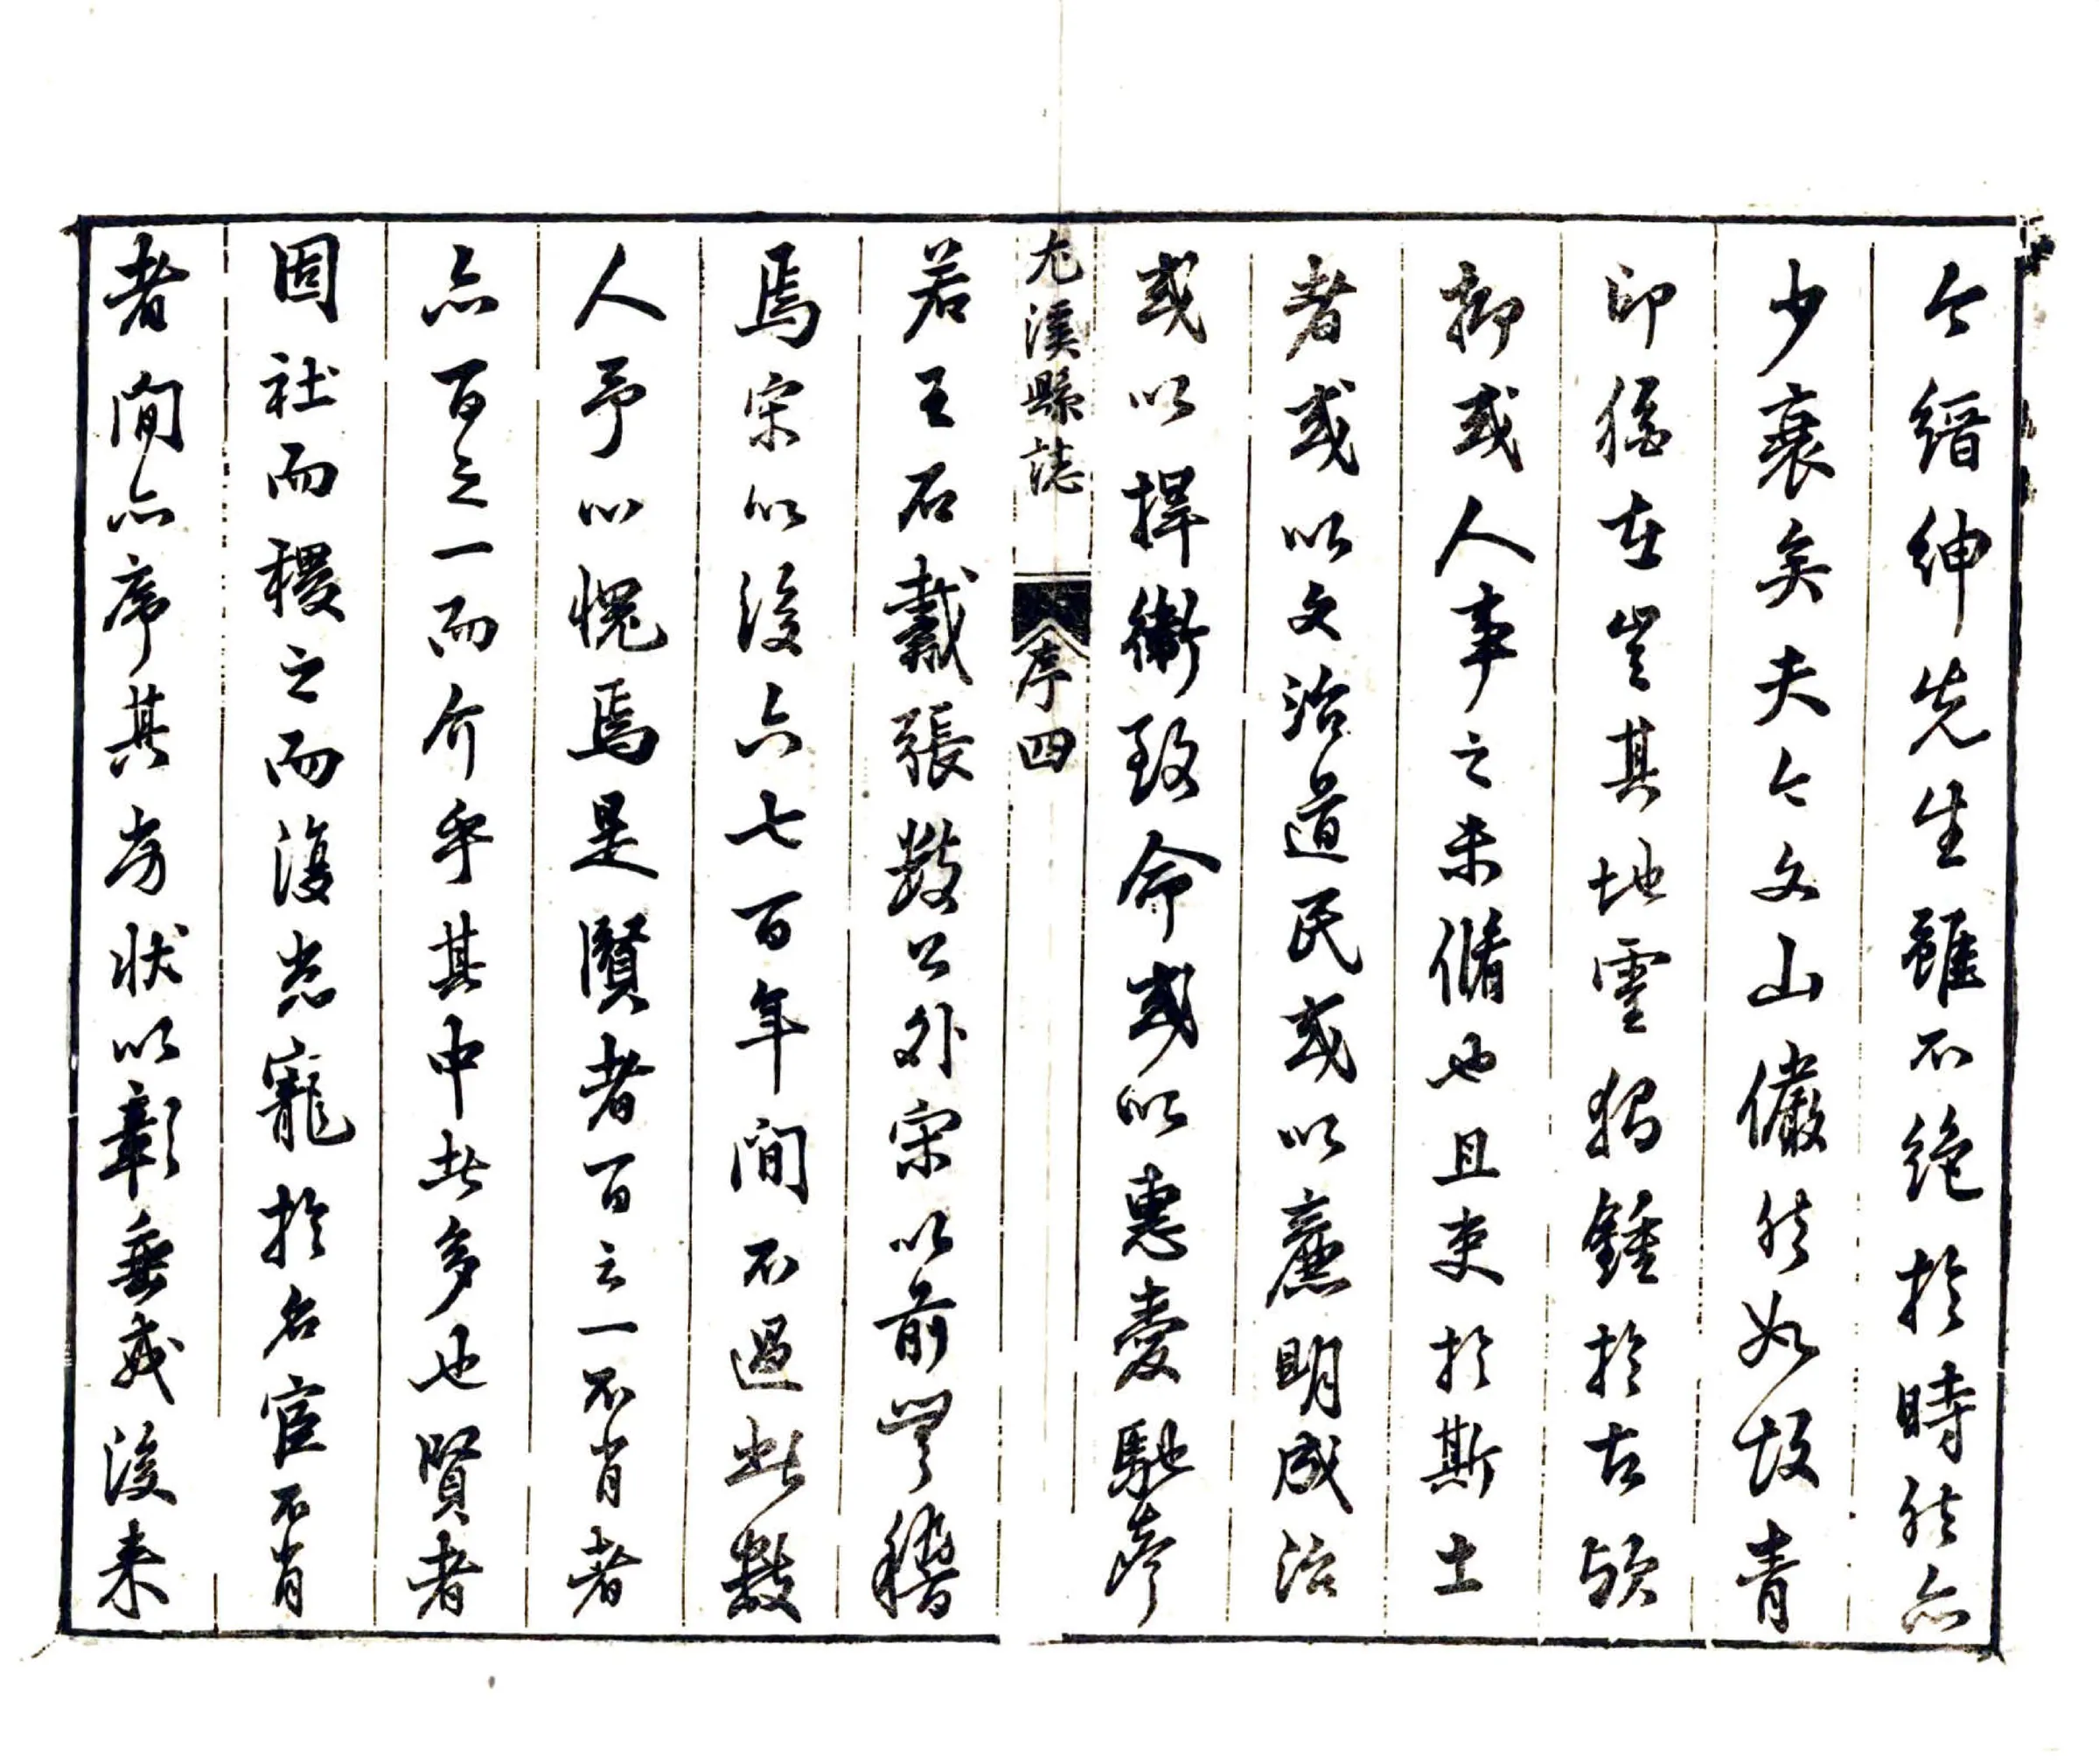 今縉紳先生雖不絕於時然亦
少衰矣夫今文山儼然如故青
印猶在豈其地靈獨鍾於古歟
抑或人事之未脩也且吏於斯土
者或以文治道民或以廉明成治
或以捍衛致命或以惠愛馳聲
尤溪縣誌
序四
若王石戴張數公外宋以前罕稽
焉宋以後六七百年間不過此數
人予以愧焉是賢者百之一不肖者
亦百之一而介乎其中者多也賢者
固社而稷之而復志寵於名宦不肖
者間亦序其考狀以彰垂戒後来